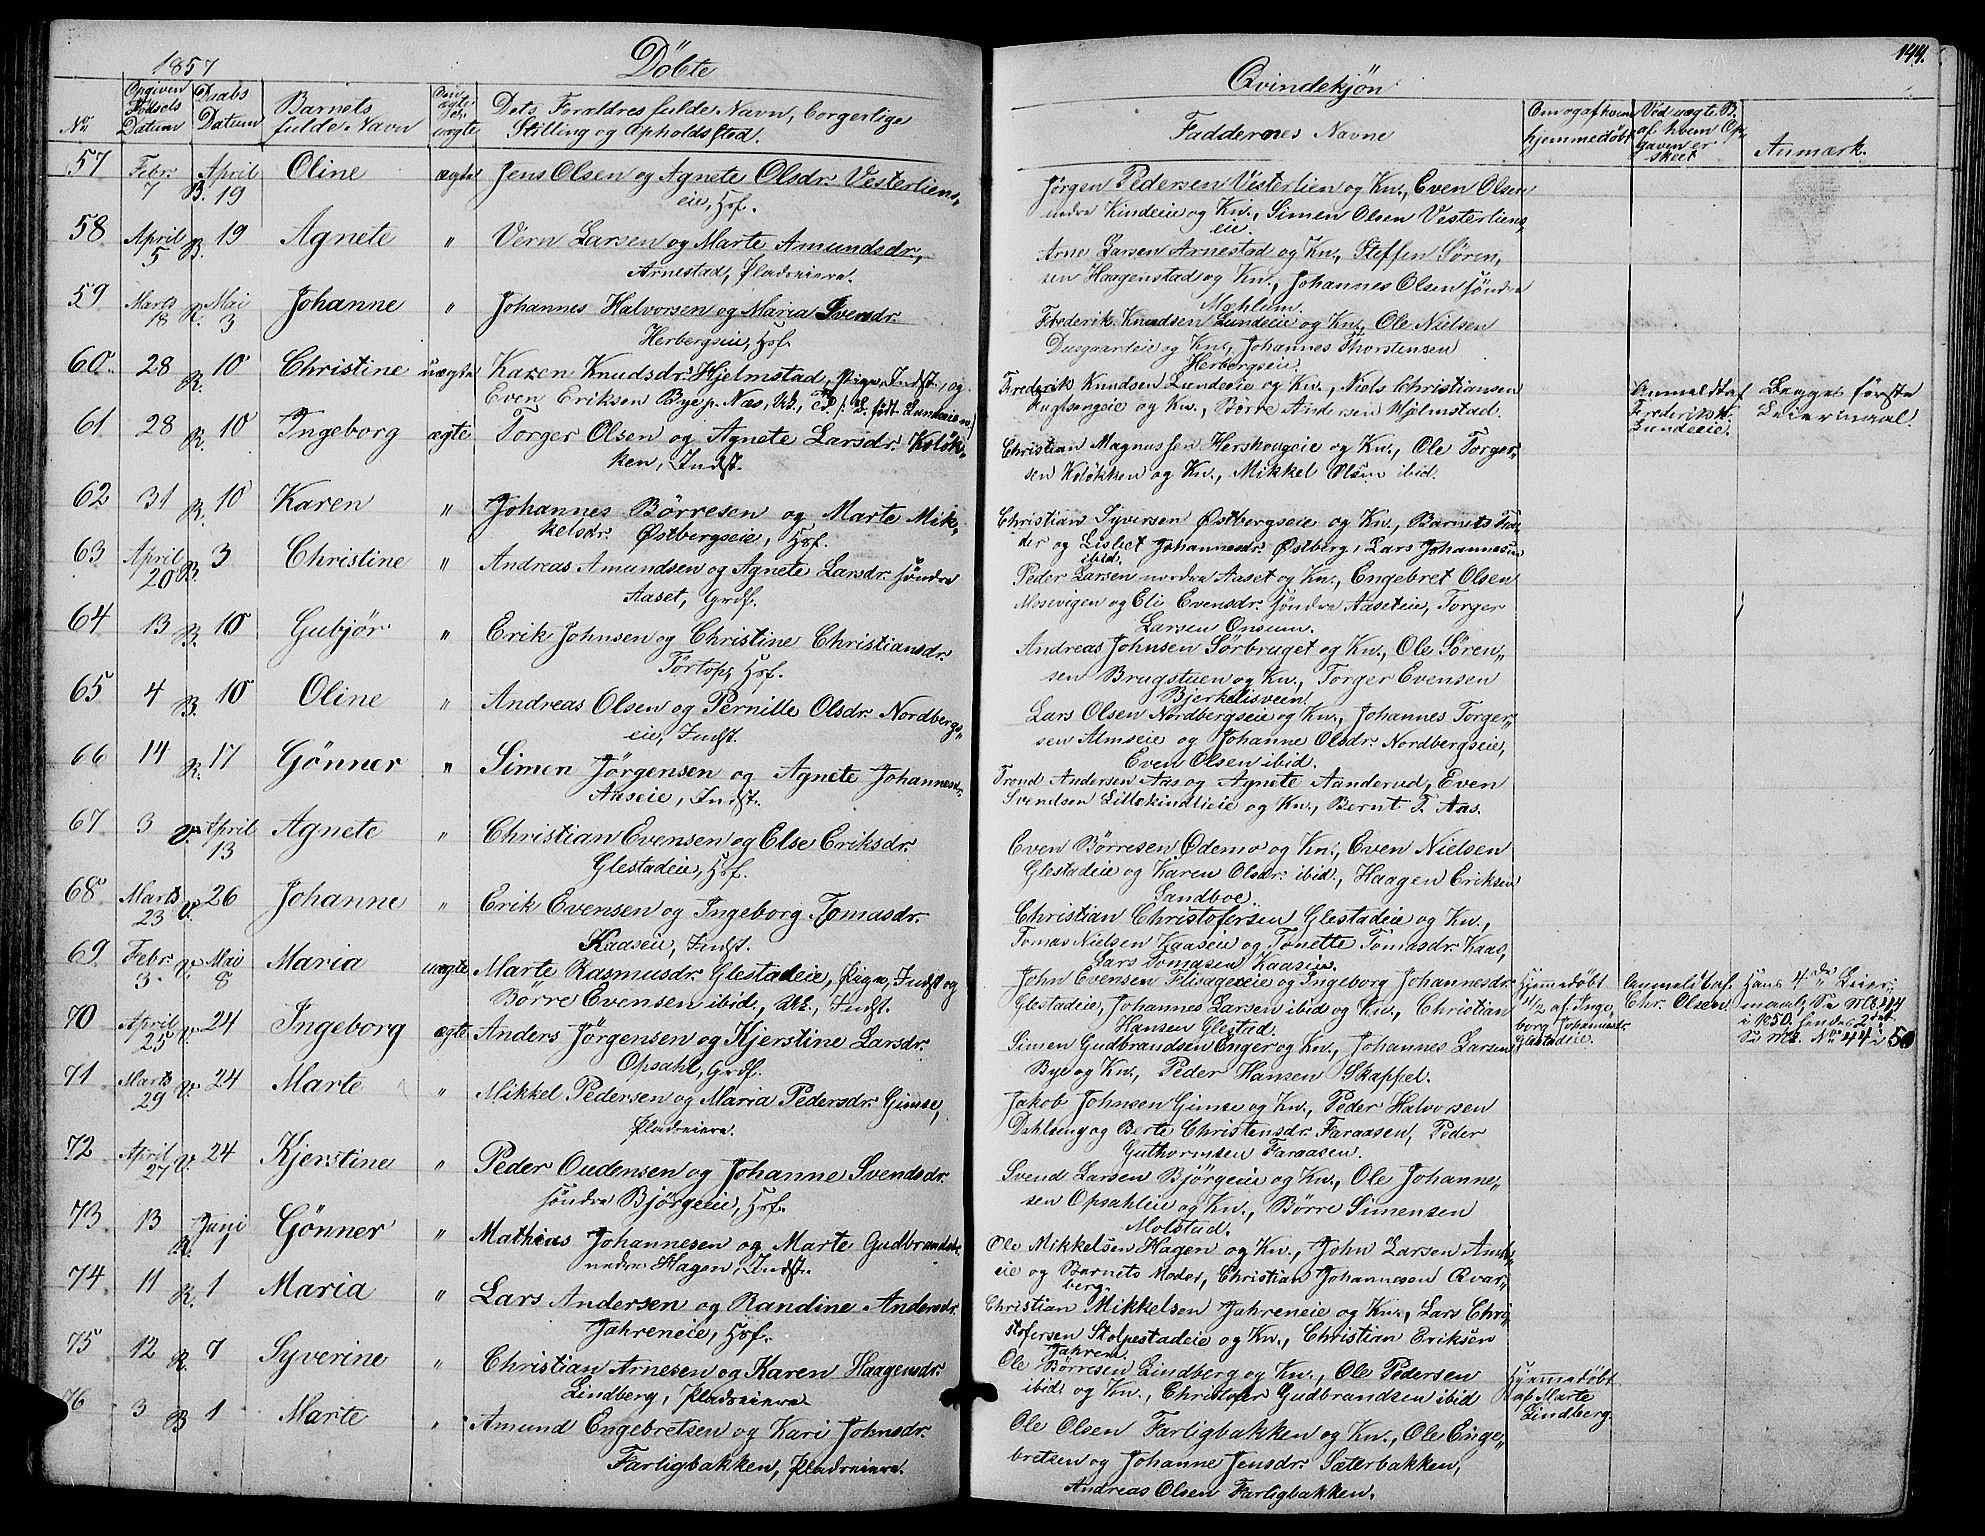 1857
Döbte
No
Opgiven Födsels Datum
Daabs Datum
Barnets fulde Navn
Om ægte el. uægte
Dets Forældres fulde Navn, borgerlige
Stilling og Opholdssted.
57 Febr. 7 B. April 19 Oline ægte Jens Olsen og Agnete Olsdr. Vesterliens„
eie, Hsf.
58 April 5 B. 19 Agnete " Vern Larsen og Marte Amundsdr.,
Arnestad, Pladseiere.
59 Marts 18 R. Mai 3 Johanne " Johannes Halvorsen og Maria Svensdr.
Herbergseie, Hsf.
60. 28 R. 10 Christine uægte Karen Knudsdr. Hjelmstad, Pige, Indst., og
Even Eriksen Bye p. Næs, Uk.
61 28 R. 10 Ingeborg ægte Torger Olsen og Agnete Larsdr. Kolök„
ken, Indst.
62 31 R. 10 Karen " Johannes Börresen og Marte Mik„
kelsdr. Østbergseie, Hsf.
63 April 20 B. 3 Christine " Andreas Amundsen og Agnete Larsdr. söndre
Aaset, Grdf.
64 13 R. 10 Gubjør " Erik Johnsen og Christine Christiansdr.
Törtop, Hsf.
65 4 B. 10 Oline " Andreas Olsen og Pernille Olsdr. Nordbergs„
eie, Indst.
66 14 R. 17 Gönner " Simen Jörgensen og Agnete Johannesdr.
Aaseie, Indst.
67 3 V. April 13 Agnete " Christian Evensen og Else Eriksdr.
Glestadeie, Hsf.
68 Marts 23 V. 26 Johanne " Erik Evensen og Ingeborg Tomasdr.
Kaaseie, Indst.
69 Febr. 3. V. Mai 8 Maria uægte Marte Rasmusdr. Glestadeie, Pige, Indst og
Börre Evensen ibid., Uk., Indst.
70 April 25 V. 24 Ingeborg ægte Anders Jörgensen og Kjerstine Larsdr.
Opsahl, Grdf.
71 Marts 29 V. 24 Marte " Mikkel Pedersen og Maria Pedersdr. Gimse,
Pladseiere.
72 April 27 V. 24 Kjerstine " Peder Oudensen og Johanne Svendsdr.
söndre Bjørgeie, Hsf.
73 13 R. Juni 1 Gönner " Mathias Johannesen og Marte Gudbrandsdr.
nedre Hagen, Indst.
74 11 R. 1 Maria " Lars Andersen og Randine Andersdr.
Jahreneie, Hsf.
75 12 R. 7 Syverine " Christian Arnesen og Karen Haagensdr.
Lindberg, Pladseiere.
76 3 B 1 Marte " Amund Engebretsen og Kari Johnsdr.
Farligbakken, Pladseiere.
144.
Qvindekjön
Faddernes Navne
Om og af hvem hjemmedöbt
Ved uægte B. af hvem Opgaven er skeet
Anmærk.
Jörgen Pedersen Vesterlien og Kn., Even Olsen
nedre Kindeie og Kn., Simen Olsen Vesterliens„
eie.
Arne Larsen Arnestad og Kn., Steffen Sören„
sen Haagenstad og Kn., Johannes Olsen söndre
Mæhlum.
Frederik Knudsen Lundeie og Kn., Ole Nielsen
Duegaardeie og Kn., Johannes Thorstensen
Herbergseie.
Frederik Knudsen Lundeie og Kn., Niels Christiansen
og Kn., Börre Andersen Hjelmstad.
Anmeldt af
Frederik K.
Lundeeie.
Begges første
Leiermaal.
Christian Magnussen Hershougeie og Kn., Ole Torger„
sen Kolökken og Kn., Mikkel Olsen ibid.
Christian Syversen Østbergseie og Kn., Barnets Fa„
der og Lisbet Johannesdr. Østberg, Lars Johannesen
ibid.
Peder Larsen nordre Aaset og Kn., Engebret Olsen
Mosevigen og Eli Evensdr. söndre Aaseteie, Torger
Larsen Onsum.
Andreas Johnsen Sörbruget og Kn., Ole Sören„
sen Brugstuen og Kn., Torger Evensen
Bjerkelisveen.
Lars Olsen Nordbergseie og Kn., Johannes Torger„
sen Almseie og Johanne Olsdr. Nordbergseie,
Even Olsen ibid.
Trond Andersen Aas og Agnete Aanderud, Even
Svendsen Littekindlieie og Kn., Bernt T. Aas.
Even Börresen Odemo og Kn., Even Nielsen
Glestadeie og Karen Olsdr. ibid., Haagen Eriksen
Sandboe.
Christian Christofersen Glestadeie og Kn.,
Tomas Nielsen Kaaseie og Tonette Tomasdr. Kaas,
Lars Tomasen Kaaseie.
John Evensen Flisageeie og Ingeborg Johannesdr.
Glestadeie, Johannes Larsen ibid og Kn., Christian
Hansen Glestad.
Hjemmedöbt
4/2 af Inge„
borg Johannesdr.
Glestadeie.
Anmeldt af
Chr. Olsen
Hans 4de Leier„
maal; Se No 44
i 1850. hendes 2det
Se Mk. No 44 i 50
Simen Gudbrandsen Enger og Kn., Johannes Larsen
Bye og Kn., Peder Hansen Skappel.
Jakob Johnsen Gimse og Kn., Peder Halvorsen
Dahlseng og Berte Christensdr. Faraasen, Peder
Guthormsen Faraasen.
Svend Larsen Bjørgeie og Kn., Ole Johanne„
sen Opsahleie og Kn., Börre Simensen
Molstad.
Ole Mikkelsen Hagen og Kn., John Larsen
eie og Barnets Moder, Christian Johannesen Qvar„
berg.
Christian Mikkelsen Jahreneie og Kn., Lars Chri„
stofersen Stolpestadeie og Kn., Christian Eriksen
Jahren.
Ole Börresen Lindberg og Kn., Ole Pedersen
ibid. og Kn., Christofer Gudbrandsen ibid
Hjemmedöbt
af Marte
Lindberg.
Ole Olsen Farligbakken og Kn., Ole Enge„
bretsen og Johanne Jensdr. Sæterbakken,
Andreas Olsen Farligbakken.